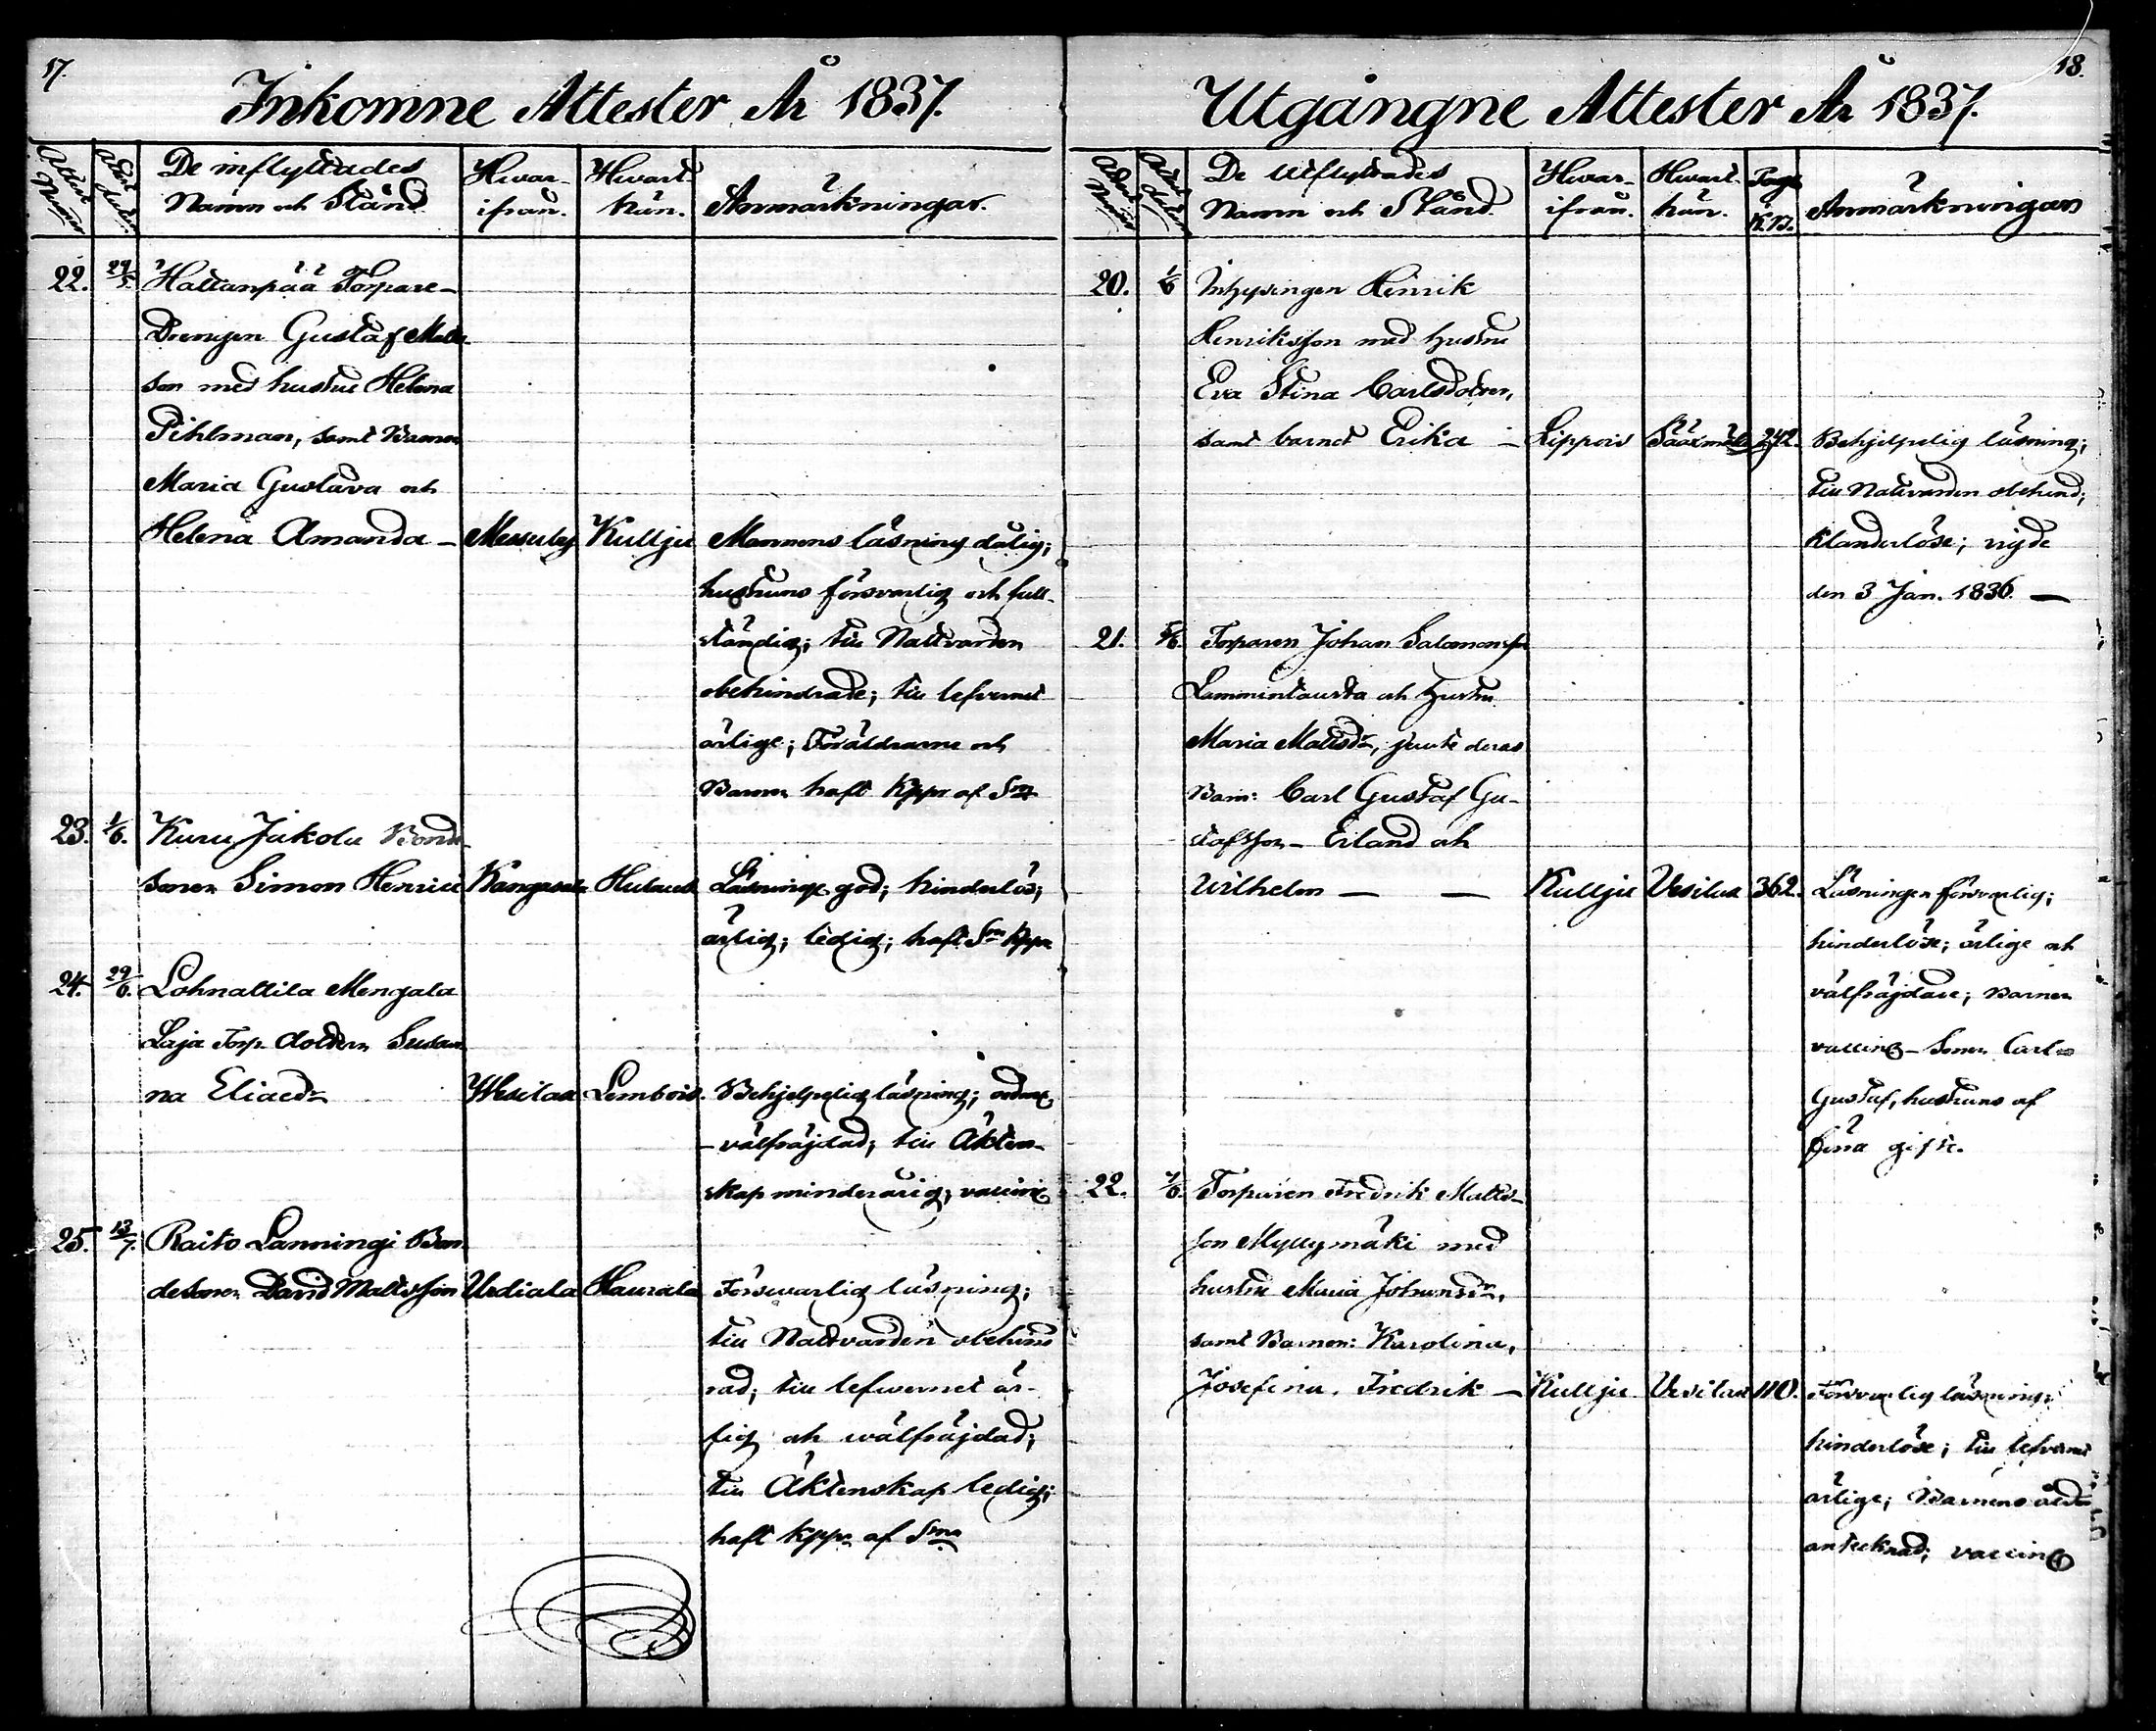 17.
Inkomne Attester År 1837.
Attest Numer
Attest datum
De inflyttades Namn och Stånd
Hwar-ifrån.
Hwart-hän.
Anmärkningar.
22. 29/5. Hattanpää Torpare-
Drengen Gustaf Matts-
son med hustru Helena
Pihlman, samt Barnen
Maria Gustava och
Helena Amanda - Messuby Kullju Mannens läsning dålig;
hustruns försvarlig och full-
ständig; till Nattvarden
obehindrade; till lefvernet
ärlige; Föräldrarne och
Barnen haft Kppr af Sm
23. 1/6. Kuru Jakola Bonde
sonen Simon Henric Kangasala Hulaus Läsninge god; hinderlös;
ärlig; ledig; haft Sm Kppr
24. 29/6. Lohnattila Mengala
Laja Torp. dottern Susan
na Eliaedr Wesilax Lembois. Behjelpelig läsning;
välfräjdad; till Äkten-
skap minderårig, vaccin
25. 13/7. Raito Lanningi Bon
desonen David Mattsson Urdiala Haurala Försvarlig läsning;
till Nattvarden obehind
rad; till lefwernet är-
lig och wälfräjdad;
till Äktenskap ledig;
haft Kppr af Sm
18.
Utgångne Attester År 1837.
Attest Numer
Attest datum
De Utflyttades Namn och Stånd.
Hwar-ifrån.
Hwart-hän.
Pag. i K.B.
Anmärkningar
20. 1/6 Inhysingen Henrik
Henriksson med hustru
Eva Stina Carlsdotter,
samt barnet Erika - Lippois Sääxmäki 242. Behjelpelig läsning;
till Nattvarden obehind;
Klanderlöse; vigde
den 3 Jan. 1836. —
21. 5/6. Torparen Johan Salomonsson
Lammintausta och Hustru
Maria Mattsdr, jemte deras
Barn: Carl Gustaf Gu-
stafsson - Erland och
Wilhelm — — Kullju Vesilax 362. Läsningen försvarlig;
hinderlöse; ärlige och
välfräjdade; Barnen
vaccine - Sonen Carl
Gustaf, hustruns af
förra gifte.
22. 7/6. Torparen Fredrik Matts-
son Myllymäki med
hustru Maria Johansdr,
samt Barnen: Karolina,
Josefina, Fredrik - Kullju Vesilax 110. Försvarlig läsning;
hinderlöse; till lefvernet
ärlige; Barnens ålder
antecknad; vaccin